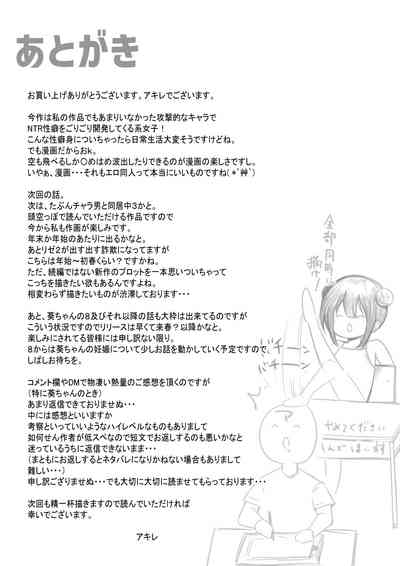 あとがき
お買い上げありがとうございます。アキレでございます。
今作は私の作品でもあまりいなかった攻撃的なキャラで
NTR性癖をごりごり開発してくる系女子！
こんな性癖身についちゃったら日常生活大変そうですけどね。
でも漫画だからおk。
空も飛べるしか〇めはめ波出したりできるのが漫画の楽しさですし。
いやぁ、漫画・・・それもエロ同人って本当にいいものですね(*ﾟ艸ﾟ)
次回の話。
次は、たぶんチャラ男と同居中3かと。
頭空っぽで読んでいただける作品ですので
今から私も作画が楽しみです。
年末か年始のあたりに出るかなと。
あとリゼ2が出す出す詐欺になってますが
こちらは年始～初春くらい？ですかね。
ただ、続編ではない新作のプロットを一本思いついちゃって
こっちを描きたい欲もあるんですよね。
相変わらず描きたいものが渋滞しております・・・
あと、葵ちゃんの8及びそれ以降の話も大枠は出来てるのですが
こういう状況ですのでリリースは早くて来春？以降かなと。
楽しみにされてる皆様には申し訳ない限り。
8からは葵ちゃんの妊娠について少しお話を動かしていく予定ですので、
しばしお待ちを。
コメント欄やDMで物凄い熱量のご感想を頂くのですが
（特に葵ちゃんのとき）
あまり返信できておりませぬ・・・
中には感想といいますか
考察といっていいようなハイレベルなものもありまして
如何せん作者が低スペなので短文でお返しするのも悪いかなと
迷っているうちに返信できないまま・・・
（まともにお返しするとネタバレになりかねない場合もありまして
難しい・・・）
申し訳ござりませぬ・・・でも大切に大切に読ませてもらっております・・・
次回も精一杯描きますので読んでいただければ
幸いでございます。
アキレ
全部同時に描け！
バチーン
バチーン
ア
やめてください
しんでしまいます